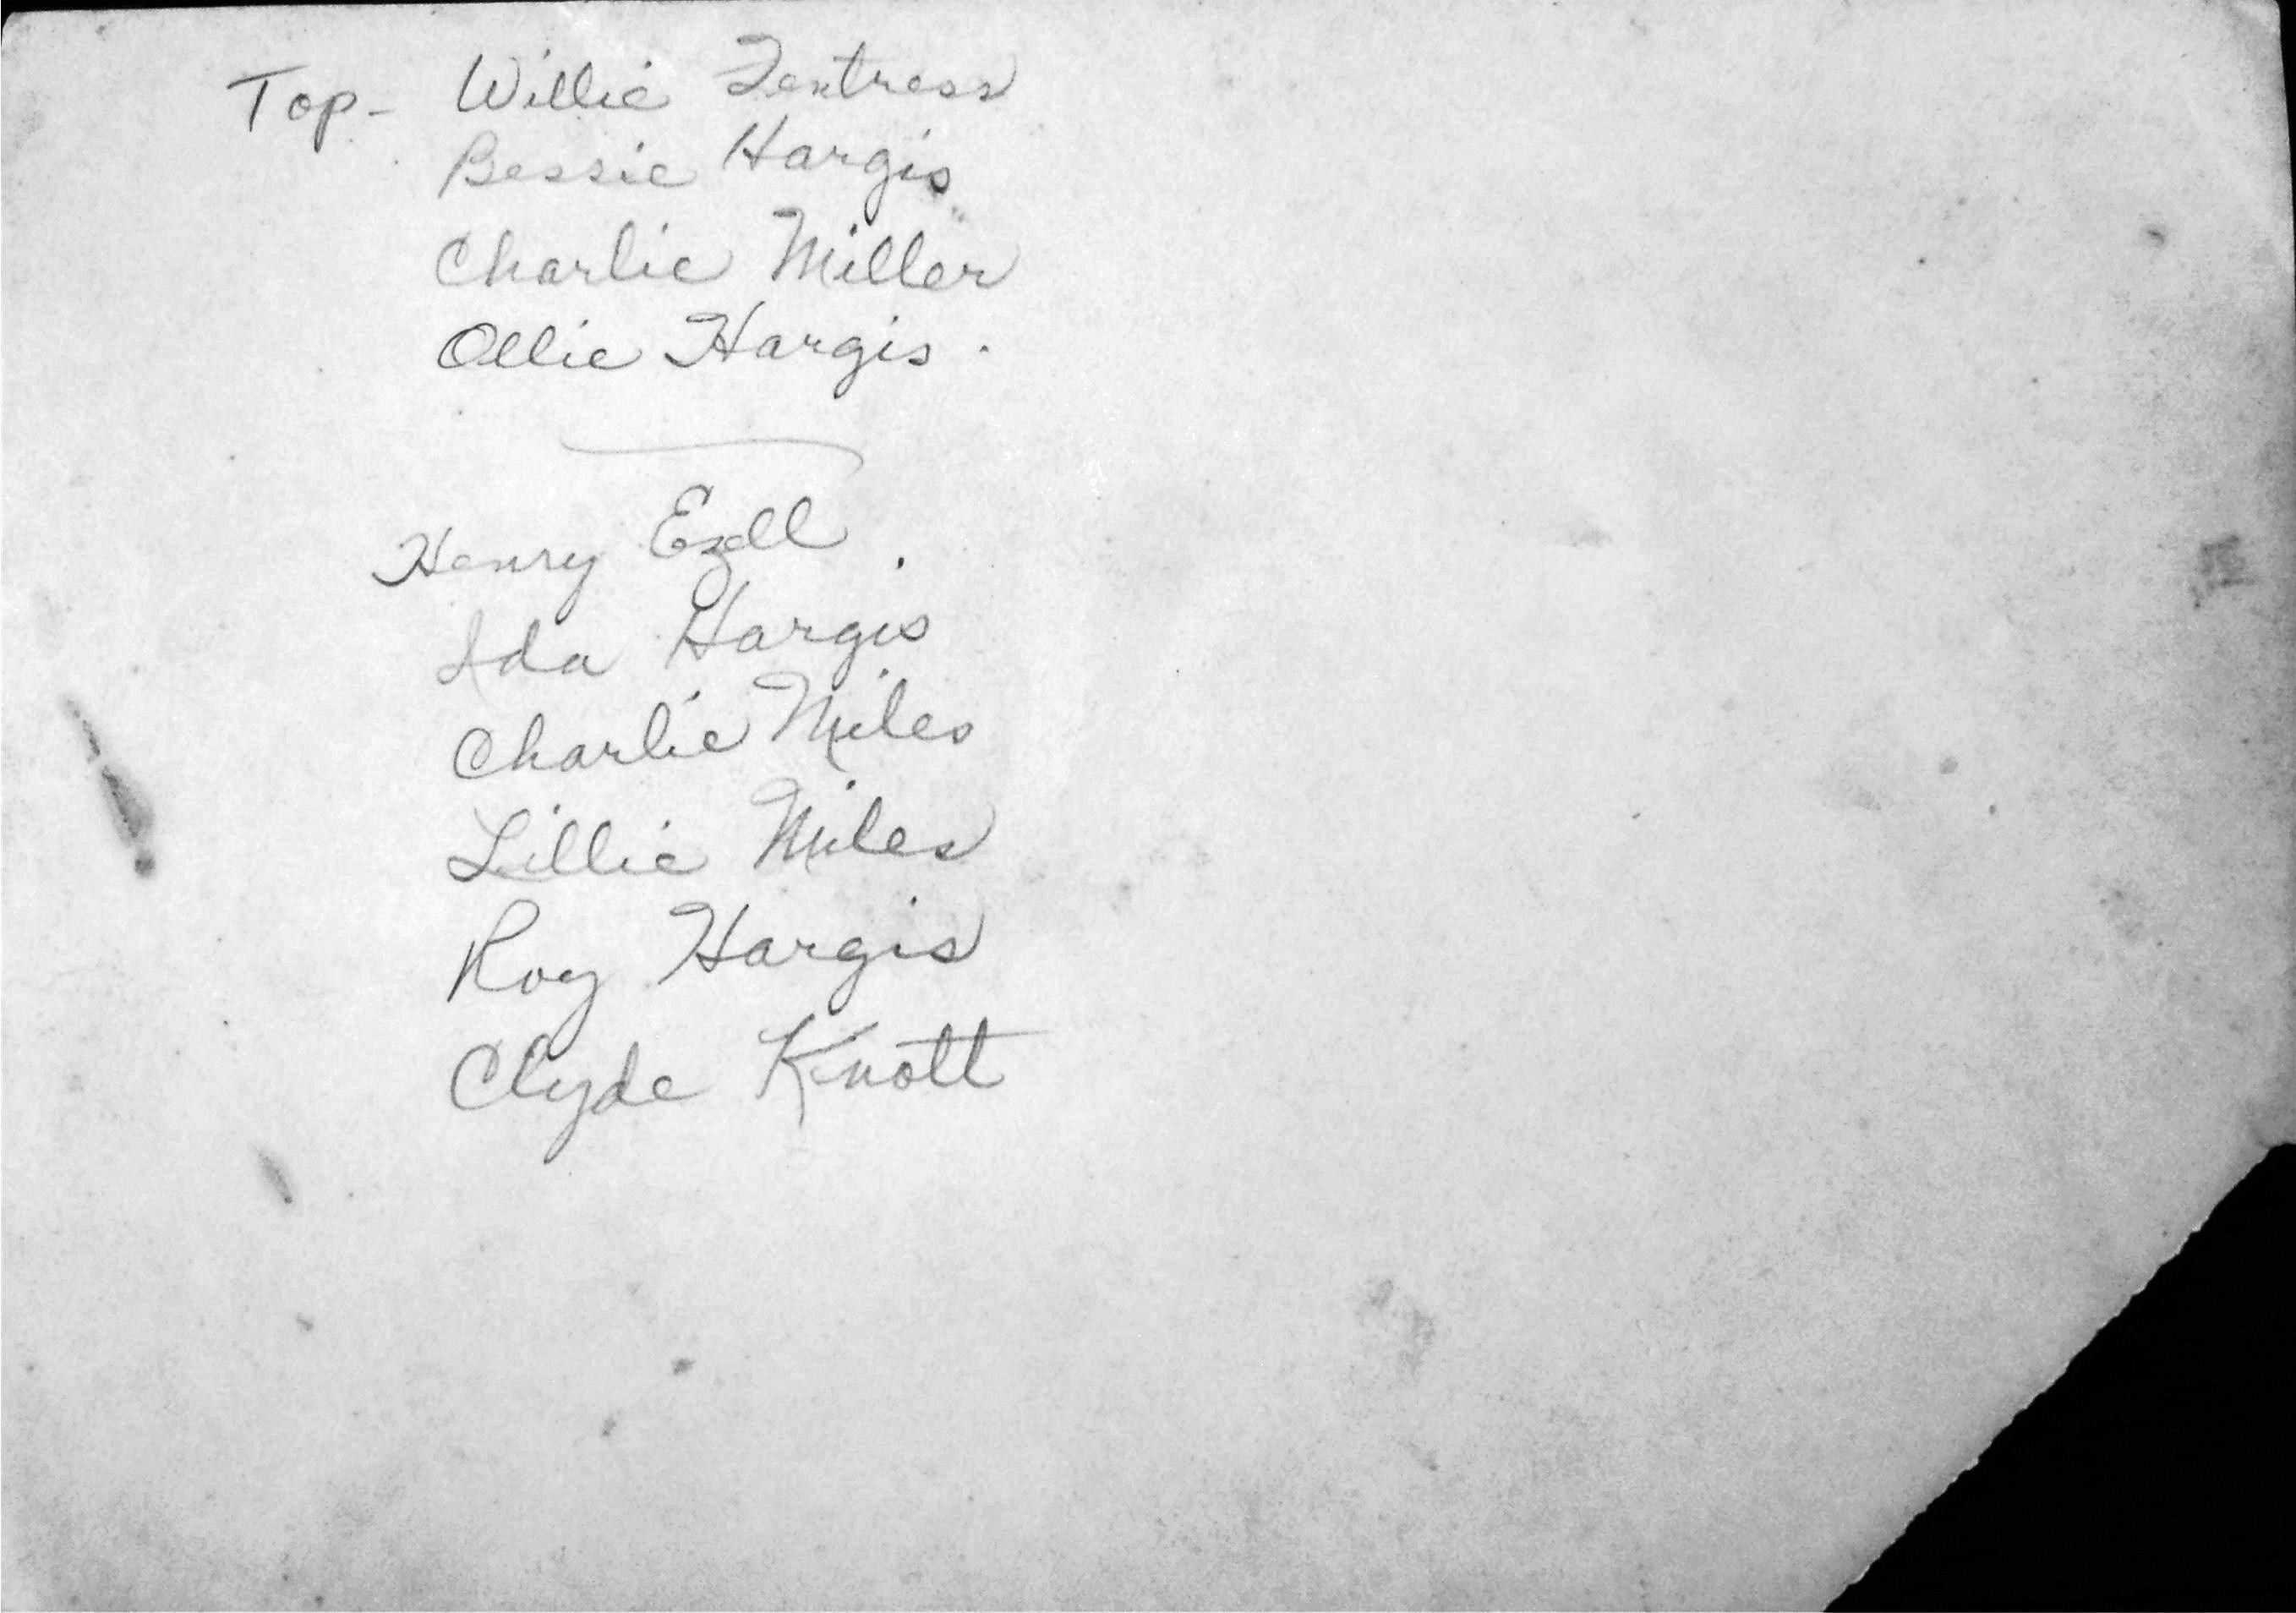 Top- Willie Fentress
Bessie Hargis
Charlie Miller
Ollie Hargis.
Henry Ezell
Ida Hargis
Charlie Miles
Lillie Miles
Roy Hargis
Clyde Knott